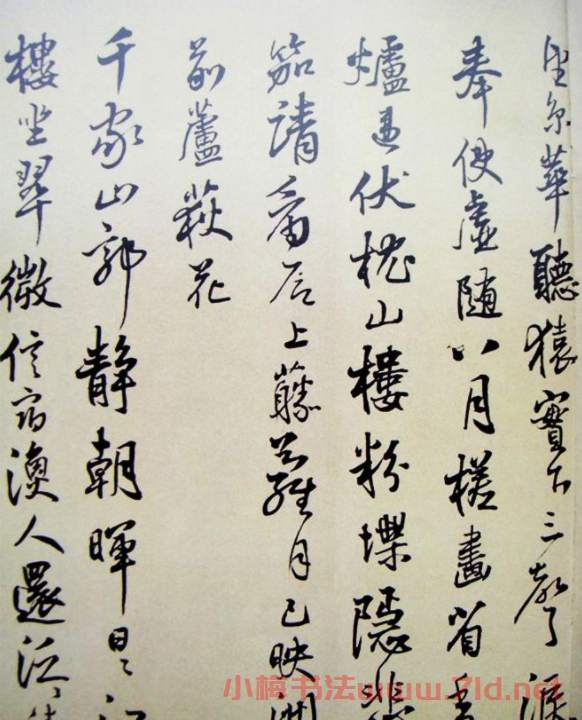 望京華聽猿實下三聲淚
奉使虛隨八月槎畫省香
爐違伏枕山樓粉堞隱悲
笳請看石上藤蘿月已映洲
前蘆荻花
千家山郭靜朝暉日日江
樓坐翠微信宿漁人還泛
小梅书法www.7ld.net